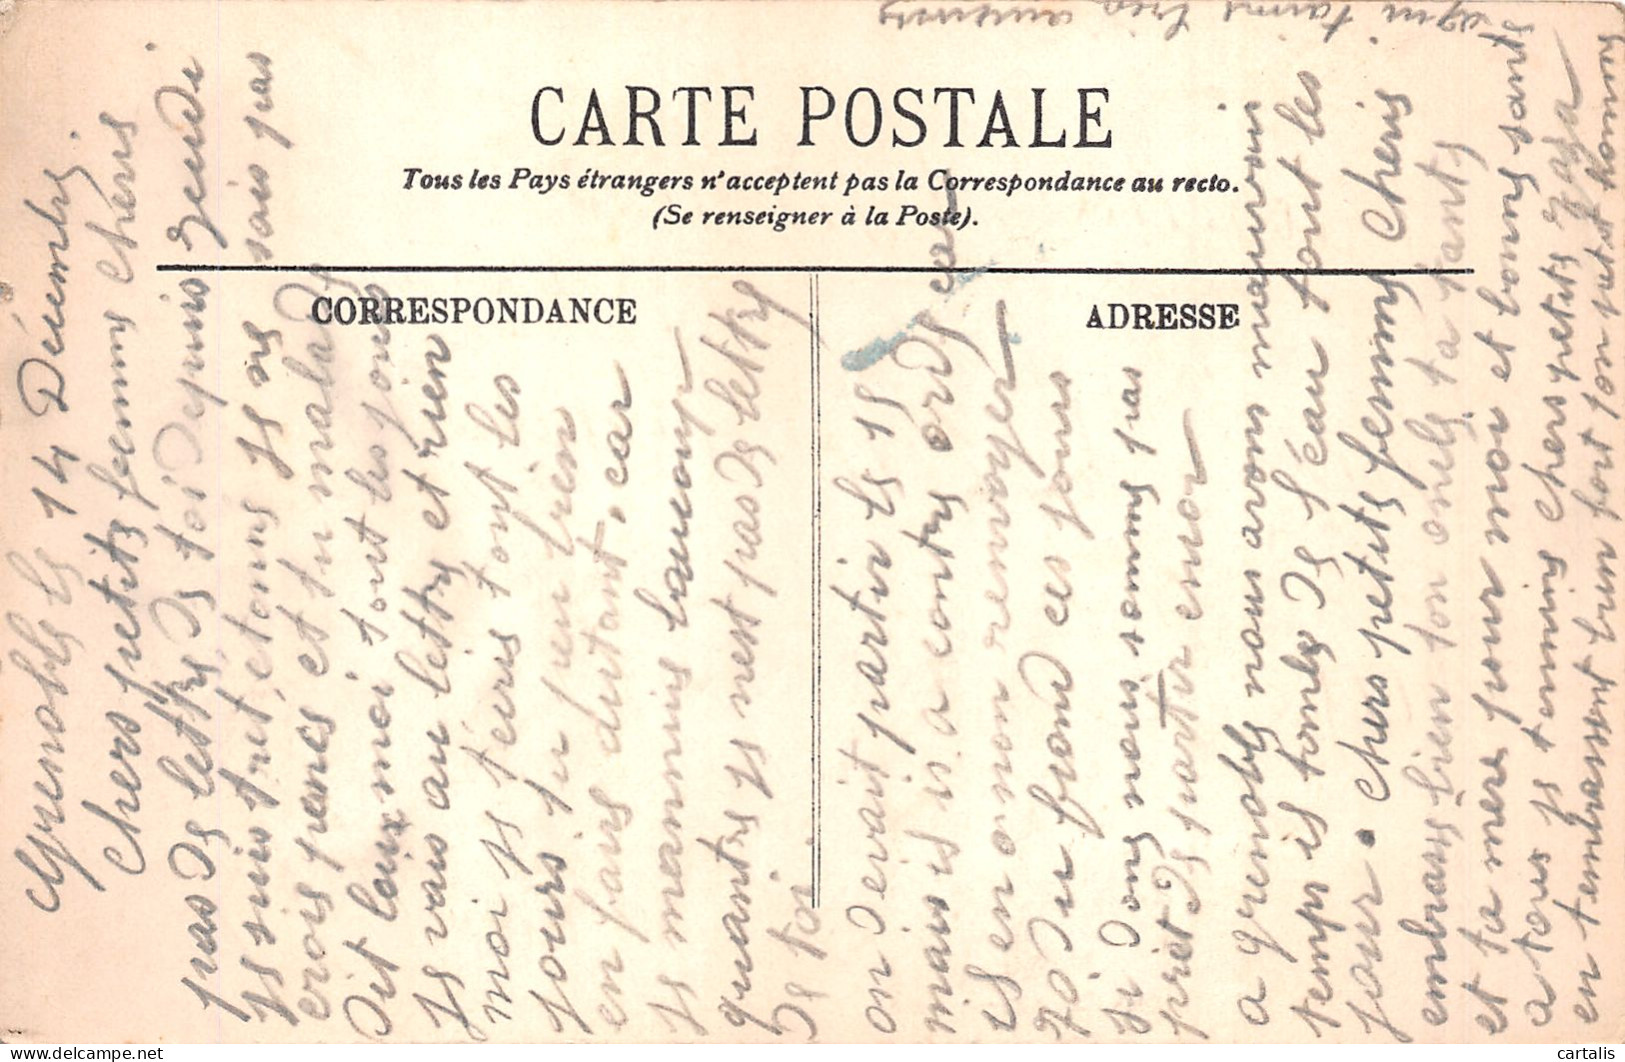 CARTE POSTALE
Tous les Pays étrangers n'acceptent pas la Correspondance au recto.
(Se renseigner à la Poste).
CORRESPONDANCE
ADRESSE
Grenoble le 14 Décembre
Chers petite femme cheris
pas de lettre de toi depuis Jeudi
Je suis tret etonne je ne sais pas
crois penes et tu malade
dit lais moi tout les jours
Je vais au lettre et rien
moi je tecris tout les
jours tu peu bien
en fairs dutant. car
je meannuis baucoup
quantre je nest pas de lettre
de toi.
on devait partir le 15
mais is a contre ordre car
is en on renvoyer
70 du frond ces jours
si donc nous somme pas
pret de partir encor
a grenoble nous avons mauvai
temps is tombe de l'eau tout les
jour. chers petite femme cheris
embrasse bien ton oncle ta tante
et ta mere pour moi et bonne sante
a tous je termine chers petite gaga
en tembrassent bien fort ton petit homme
qui taime
cartalis